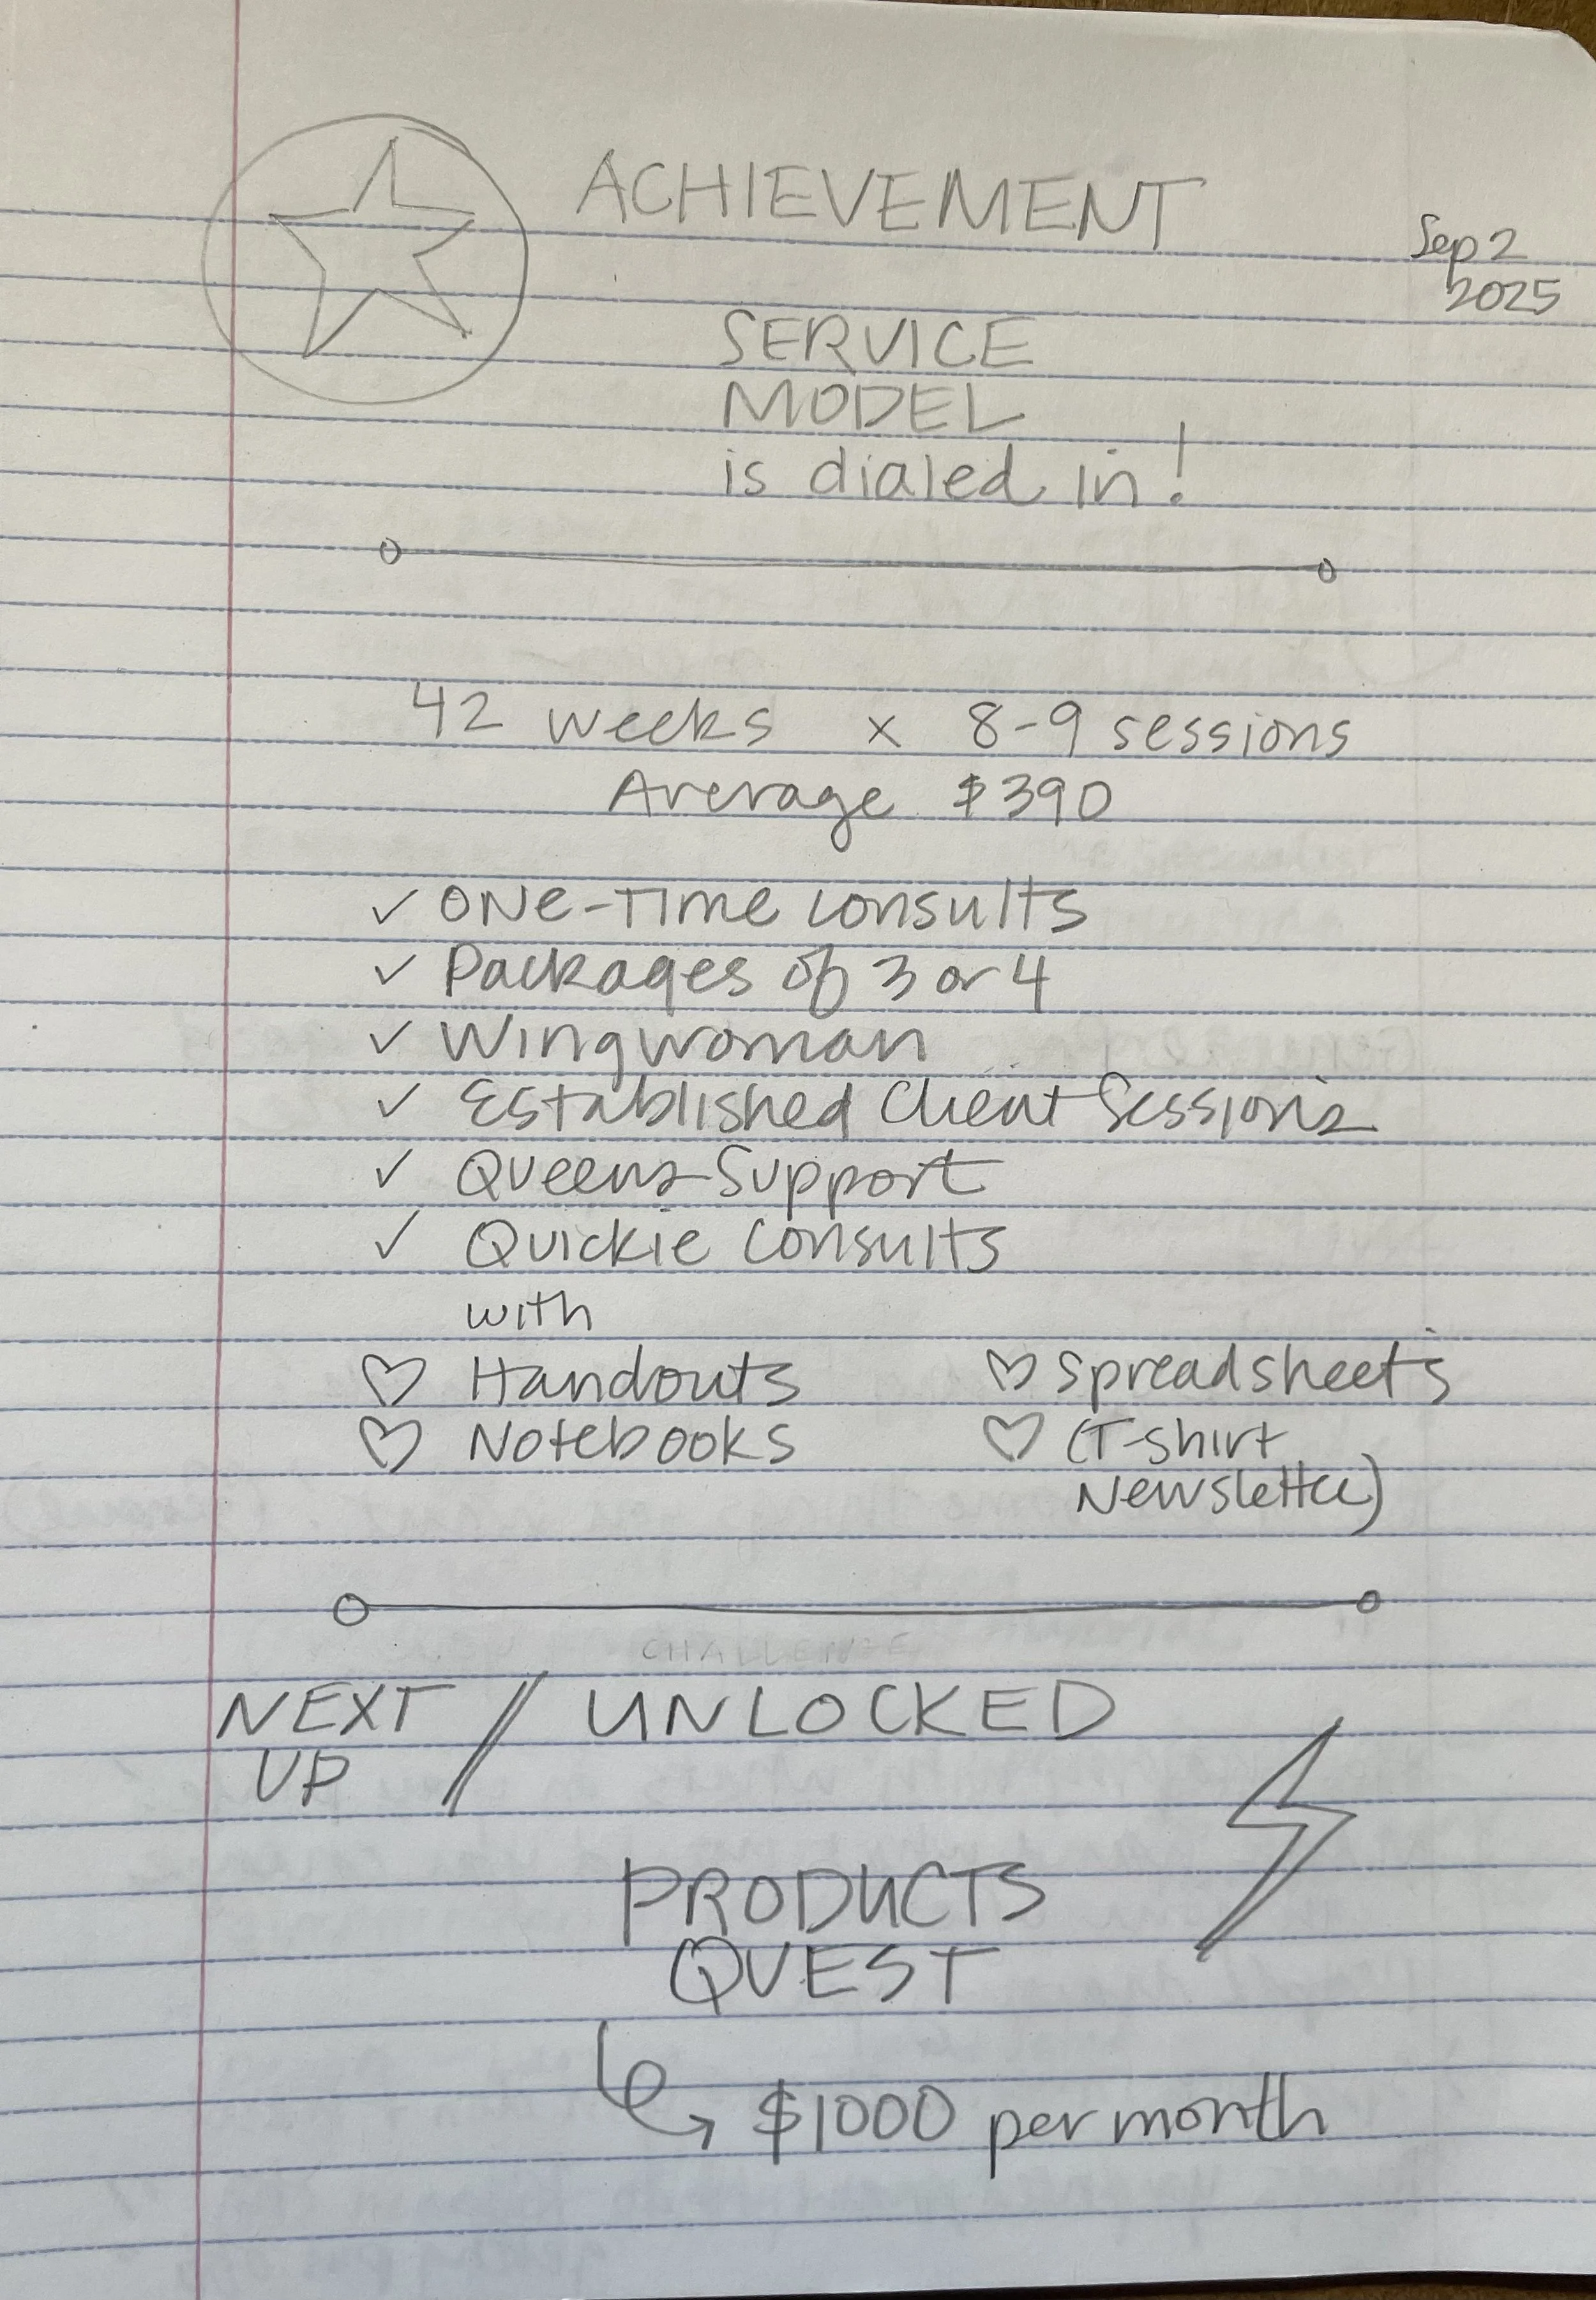 ACHIEVEMENT
Sep 2
2025
SERVICE
MODEL
is dialed in!
42 weeks x 8-9 sessions
Average $390
✓ ONE-TIME CONSULTS
✓ Packages of 3 or 4
✓ Wingwoman
✓ Established Client Sessions
✓ Queens Support
✓ Quickie Consults
with
♡ Handouts ♡ Spreadsheets
♡ Notebooks ♡ (T-shirt
Newsletter)
CHALLENGE
NEXT / UNLOCKED
UP
PRODUCTS
QUEST
$1000 per month